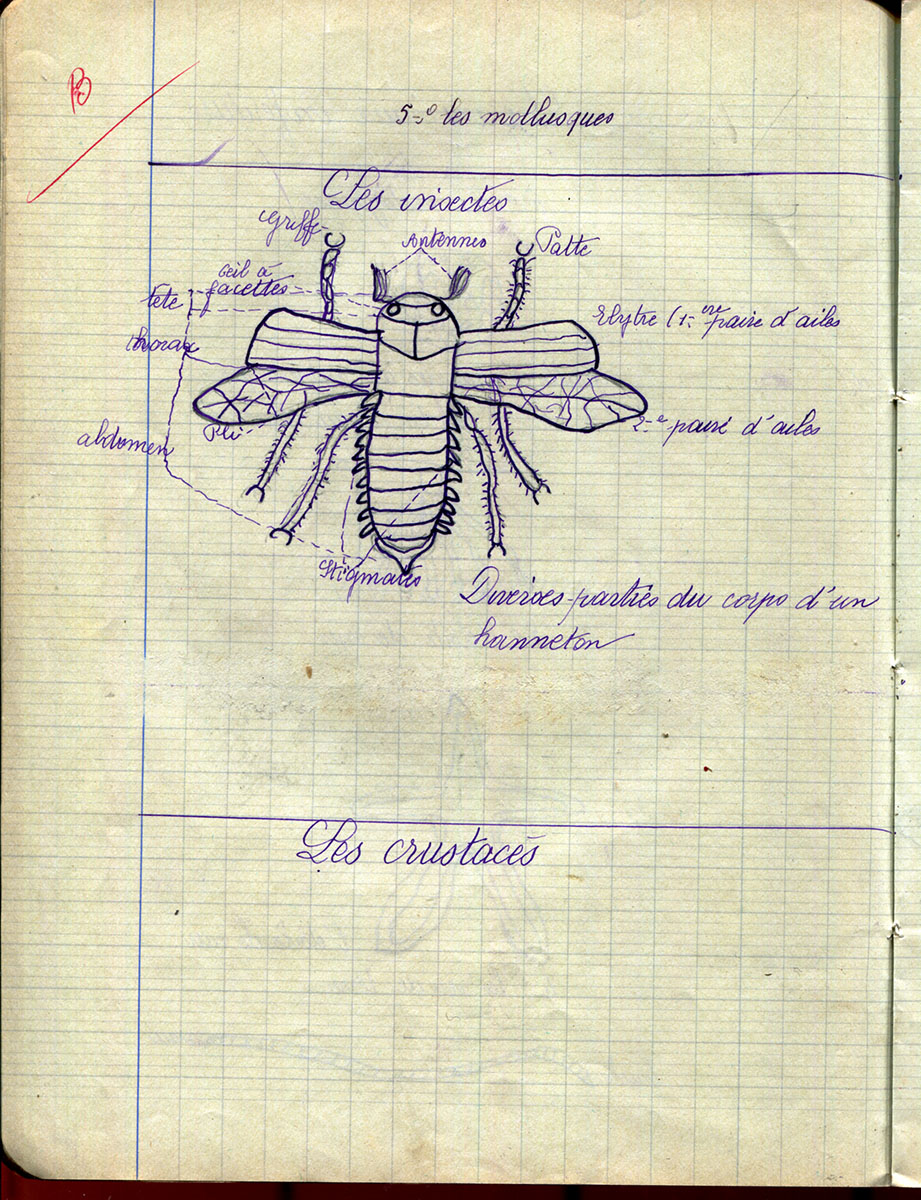 B
5-º les mollusques
Les insectes
Griffe
Antennes
Patte
Oeil à
facettes
tête
Elytre (1-ère paire d'ailes
thorax
Pli
2-e paire d'ailes
abdomen
Stigmates
Diverses parties du corps d'un
hanneton
Les crustacés